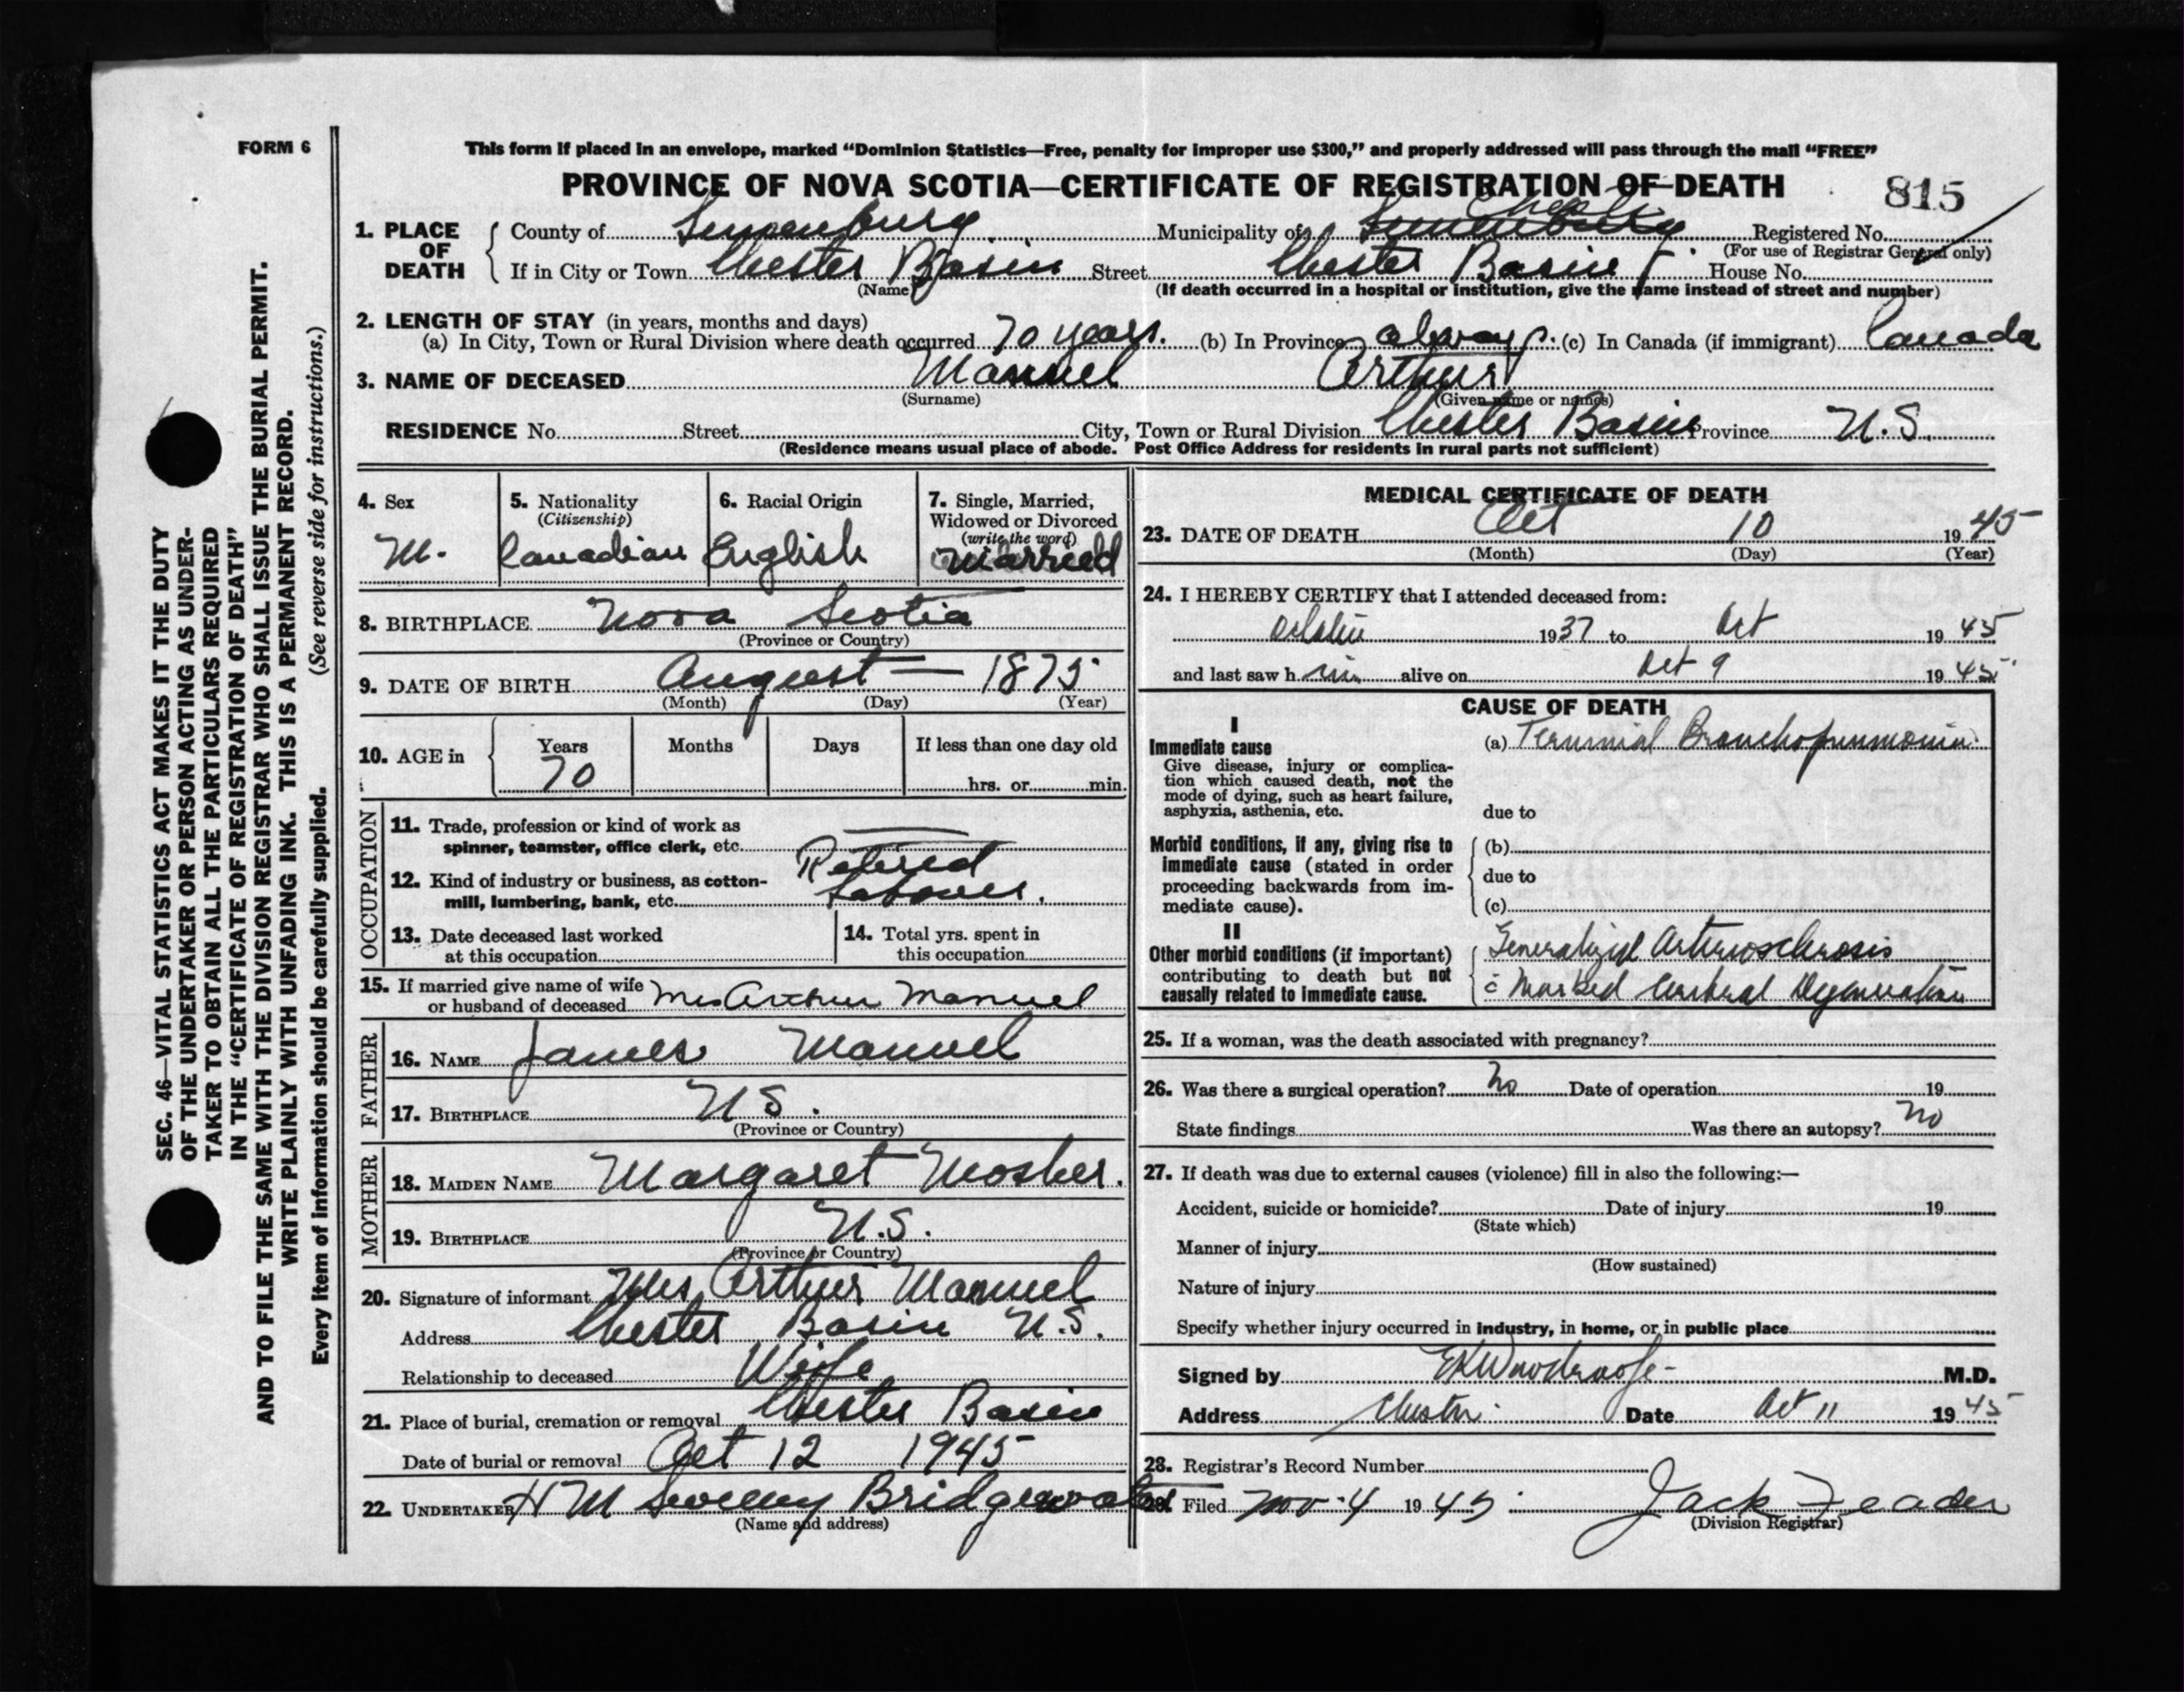 FORM 6
This form if placed in an envelope, marked “Dominion Statistics—Free, penalty for improper use $300,” and properly addressed will pass through the mail “FREE”
PROVINCE OF NOVA SCOTIA—CERTIFICATE OF REGISTRATION OF DEATH 815
1. PLACE OF DEATH
County of Lunenburg Municipality of Lunenburg Chester Registered No.
(For use of Registrar General only)
If in City or Town Chester Basin Street Chester Basin House No.
(Name) (If death occurred in a hospital or institution, give the name instead of street and number)
2. LENGTH OF STAY (in years, months and days)
(a) In City, Town or Rural Division where death occurred 70 years. (b) In Province always. (c) In Canada (if immigrant) Canada
3. NAME OF DECEASED Manuel Arthur
(Surname) (Given name or names)
RESIDENCE No. Street City, Town or Rural Division Chester Basin Province N.S.
(Residence means usual place of abode. Post Office Address for residents in rural parts not sufficient)
4. Sex M.
5. Nationality (Citizenship) Canadian
6. Racial Origin English
7. Single, Married, Widowed or Divorced (write the word) Married
8. BIRTHPLACE Nova Scotia
(Province or Country)
9. DATE OF BIRTH August — 1875
(Month) (Day) (Year)
10. AGE in Years 70 Months Days If less than one day old
hrs. or min.
OCCUPATION
11. Trade, profession or kind of work as
spinner, teamster, office clerk, etc. Retired
12. Kind of industry or business, as cotton-
mill, lumbering, bank, etc. Labourer.
13. Date deceased last worked
at this occupation
14. Total yrs. spent in
this occupation
15. If married give name of wife
or husband of deceased Mrs Arthur Manuel
FATHER
16. NAME James Manuel
17. BIRTHPLACE N S.
(Province or Country)
MOTHER
18. MAIDEN NAME Margaret Mosher.
19. BIRTHPLACE N.S.
(Province or Country)
20. Signature of informant Mrs Arthur Manuel
Address Chester Basin N.S.
Relationship to deceased Wife
21. Place of burial, cremation or removal Chester Basin
Date of burial or removal Oct 12 1945
22. UNDERTAKER H M Sweeny Bridgewater
(Name and address)
MEDICAL CERTIFICATE OF DEATH
23. DATE OF DEATH Oct 10 1945
(Month) (Day) (Year)
24. I HEREBY CERTIFY that I attended deceased from:
1937 to Oct 1945
and last saw him alive on Oct 9 1945
CAUSE OF DEATH
I
Immediate cause (a) Terminal Bronchopneumonia
Give disease, injury or complica-
tion which caused death, not the
mode of dying, such as heart failure,
asphyxia, asthenia, etc. due to
Morbid conditions, if any, giving rise to (b)
immediate cause (stated in order
proceeding backwards from im- due to
mediate cause). (c)
II
Other morbid conditions (if important) Generalized Arteriosclerosis
contributing to death but not
causally related to immediate cause. c̄ Marked Cerebral Degeneration
25. If a woman, was the death associated with pregnancy?
26. Was there a surgical operation? No Date of operation 19
State findings Was there an autopsy? No
27. If death was due to external causes (violence) fill in also the following:—
Accident, suicide or homicide? Date of injury 19
(State which)
Manner of injury
(How sustained)
Nature of injury
Specify whether injury occurred in industry, in home, or in public place
Signed by M.D.
Address Chester Date Oct 11 1945
28. Registrar's Record Number
29. Filed Nov 4 1945 Jack Zeader
(Division Registrar)
SEC. 46—VITAL STATISTICS ACT MAKES IT THE DUTY
OF THE UNDERTAKER OR PERSON ACTING AS UNDER-
TAKER TO OBTAIN ALL THE PARTICULARS REQUIRED
IN THE “CERTIFICATE OF REGISTRATION OF DEATH”
AND TO FILE THE SAME WITH THE DIVISION REGISTRAR WHO SHALL ISSUE THE BURIAL PERMIT.
WRITE PLAINLY WITH UNFADING INK. THIS IS A PERMANENT RECORD.
Every item of information should be carefully supplied. (See reverse side for instructions.)